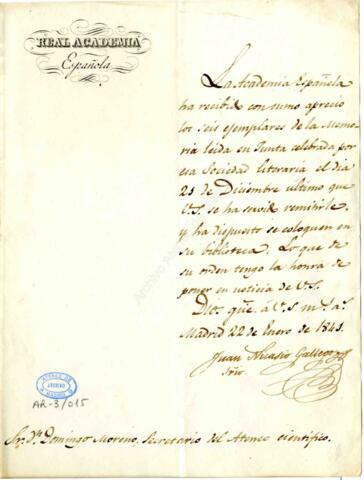 REAL ACADEMIA
Española
La Academia Española
ha recibido con sumo aprecio
los seis ejemplares de la Memo-
ria leida en Junta celebrada por
esa Sociedad literaria el dia
21 de Diciembre ultimo que
V.S. se ha servido remitirle,
y ha dispuesto se coloquen en
su biblioteca. Lo que de
su orden tengo la honra de
poner en noticia de V.S.
Dios gue. á V.S. ms. as.
Madrid 22 de Enero de 1841.
Juan Nicasio Gallego
Srio.
ATENEO DE
MADRID
AR-3/015
Sr. Dn. Domingo Moreno, Secretario del Ateneo cientifico.